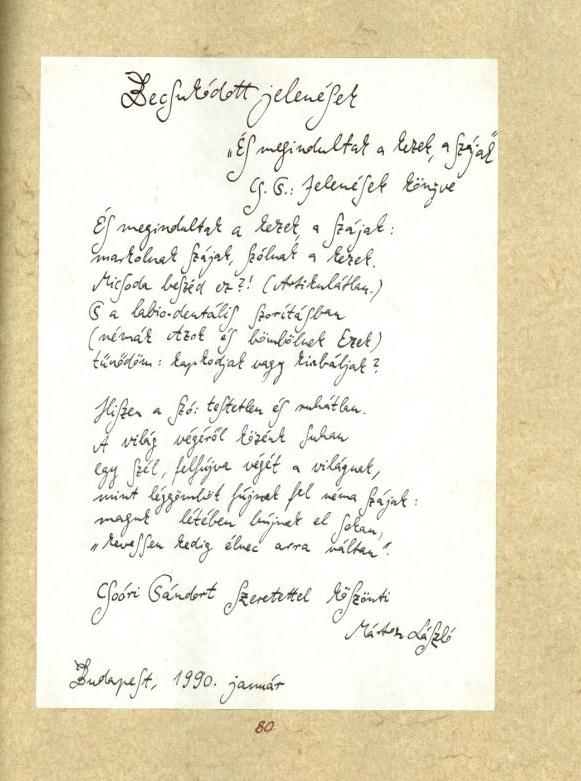 Becsukódott jelenések
„És megindultak a kezek, a szájak"
Cs. S.: Jelenések könyve
És megindultak a kezek, a szájak:
markolnak szájak, szólnak a kezek.
Micsoda beszéd ez?! (Artikulátlan.)
S a labio-dentális szorításban
(némák Azok és bömbölnek Ezek)
tűnődöm: kapkodjak vagy kiabáljak?
Hiszen a szó: testetlen és ruhátlan.
A világ végéről közénk suhan
egy szél, felfújva végét a világnak,
mint léggömböt fújnak fel néma szájak:
maguk létében bújnak el sokan,
„kevessen kedig élnec arra váltan".
Csoóri Sándort szeretettel köszönti
Márton László
Budapest, 1990. január
80